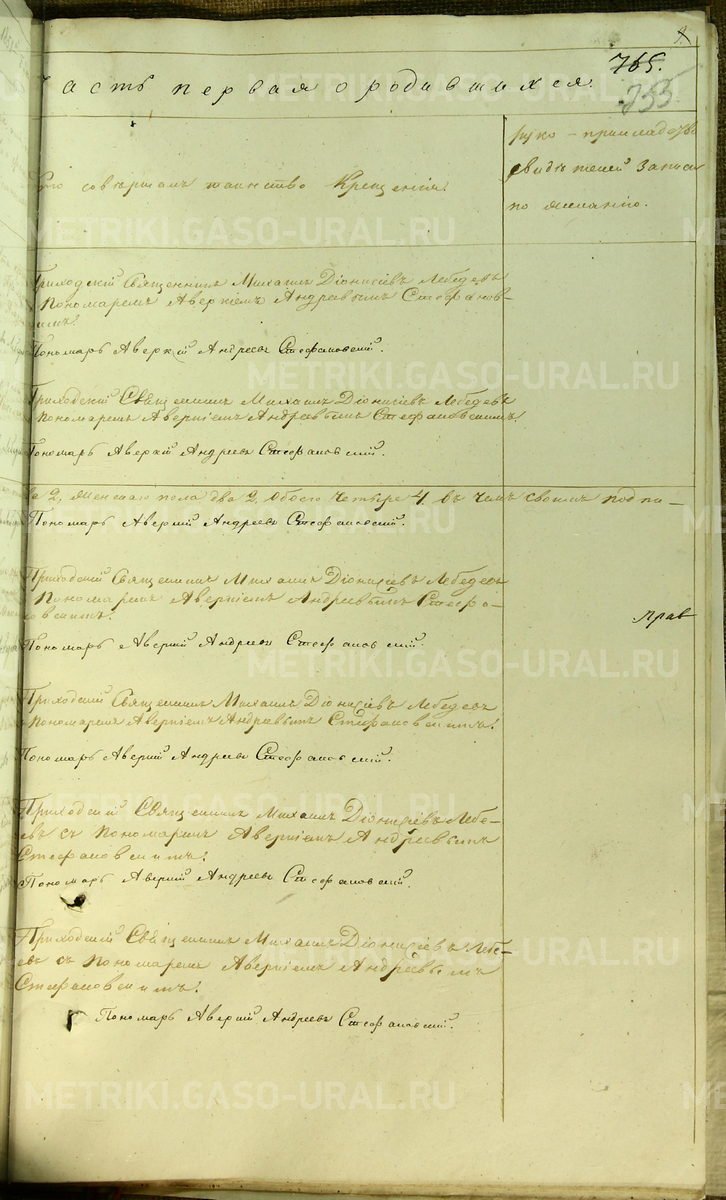 765.
253
Часть первая о родившихся.
Кто совершалъ таинство Крещенія.
руко-прикладств
свидѣтелей записи
по желанію.
METRIKI.GASO-URAL.RU
Приходскій Священникъ Михаилъ Діонисіевъ Лебедевъ
Пономаремъ Аверкіемъ Андреевымъ Стефанов-
имъ.
Пономарь Аверкій Андреевъ Стефановскій.
METRIKI.GASO-URAL.RU
Приходскій Священникъ Михаилъ Діонисіевъ Лебедевъ
Пономаремъ Аверкіемъ Андреевымъ Стефановскимъ.
Пономарь Аверкій Андреевъ Стефановскій.
METRIKI.GASO-URAL.RU
ва 2, женскаго пола два 2, обоего четыре 4 въ чемъ своимъ подпи-
Пономарь Аверкій Андреевъ Стефановскій.
Приходскій Священникъ Михаилъ Діонисіевъ Лебедевъ
Пономаремъ Аверкіемъ Андреевымъ Стефа-
новскимъ.
прав
Пономарь Аверкій Андреевъ Стефановскій.
METRIKI.GASO-URAL.RU
Приходскій Священникъ Михаилъ Діонисіевъ Лебедевъ
Пономаремъ Аверкіемъ Андреевымъ Стефановскимъ.
Пономарь Аверкій Андреевъ Стефановскій.
METRIKI.GASO-URAL.RU
Приходскій Священникъ Михаилъ Діонисіевъ Лебе-
евъ съ Пономаремъ Аверкіемъ Андреевымъ
Стефановскимъ.
Пономарь Аверкій Андреевъ Стефановскій.
Приходскій Священникъ Михаилъ Діонисіевъ Лебе-
евъ съ Пономаремъ Аверкіемъ Андреевымъ
Стефановскимъ.
METRIKI.GASO-URAL.RU
Пономарь Аверкій Андреевъ Стефановскій.
METRIKI.GASO-URAL.RU